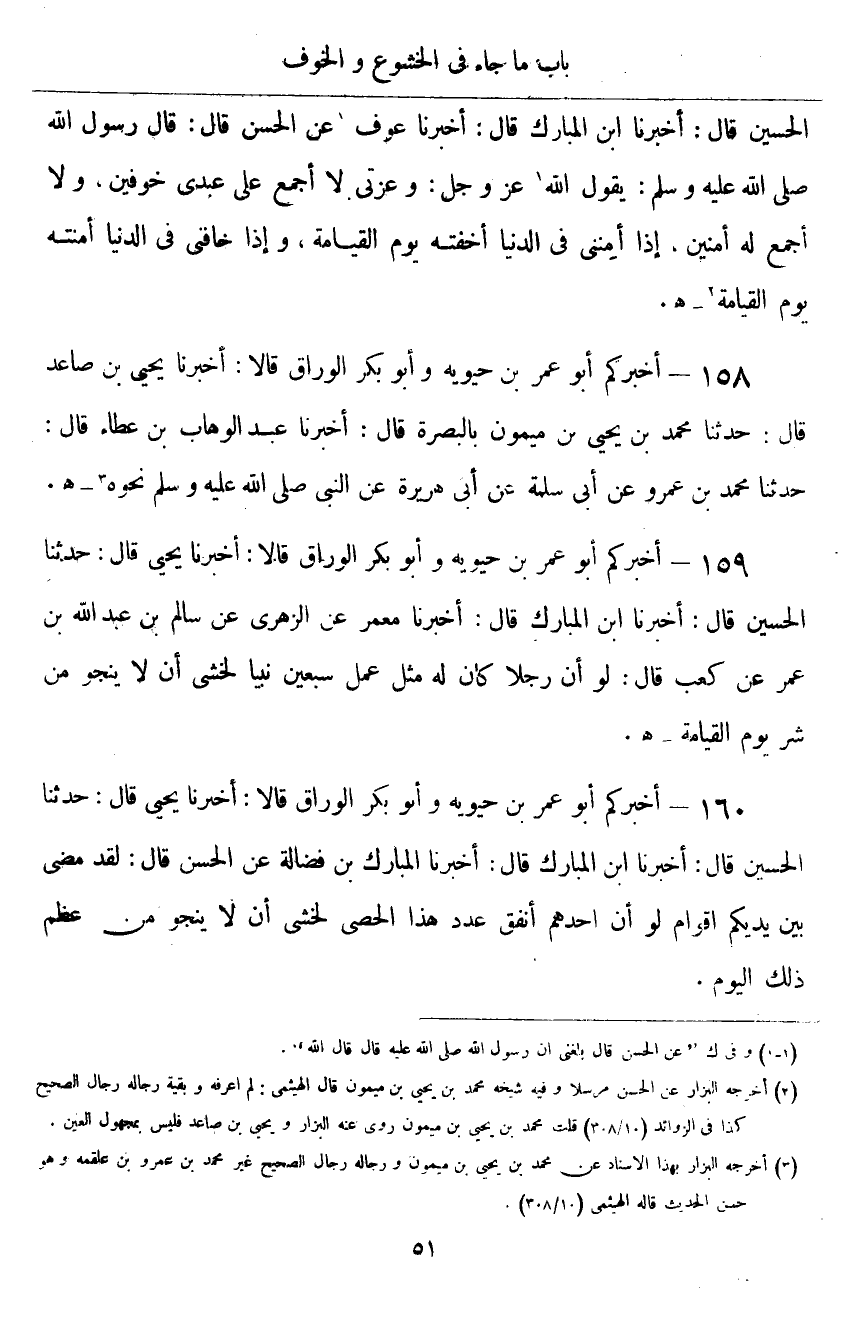 باب ما جاء فى الخشوع و الخوف
الحسين قال : أخبرنا ابن المبارك قال : أخبرنا عوف ١عن الحسن قال : قال رسول الله
صلى الله عليه و سلم : يقول الله١ عز و جل : و عزتى لا أجمع على عبدى خوفين ، و لا
أجمع له أمنين ، إذا أمننى فى الدنيا أخفته يوم القيامة ، و إذا خافنى فى الدنيا أمنته
يوم القيامة٢ ـ ه .
١٥٨ – أخبركم أبو عمر بن حيويه و أبو بكر الوراق قالا : أخبرنا يحيى بن صاعد
قال : حدثنا محمد بن يحيى بن ميمون بالبصرة قال : أخبرنا عبد الوهاب بن عطاء قال :
حدثنا محمد بن عمرو عن أبى سلمة عن أبى هريرة عن النبى صلى الله عليه و سلم نحوه٣ ـ ه .
١٥٩ – أخبركم أبو عمر بن حيويه و أبو بكر الوراق قالا : أخبرنا يحيى قال : حدثنا
الحسين قال : أخبرنا ابن المبارك قال : أخبرنا معمر عن الزهرى عن سالم بن عبد الله بن
عمر عن كعب قال : لو أن رجلا كان له مثل عمل سبعين نبيا لخشى أن لا ينجو من
شر يوم القيامة ـ ه .
١٦٠ – أخبركم أبو عمر بن حيويه و أبو بكر الوراق قالا : أخبرنا يحيى قال : حدثنا
الحسين قال : أخبرنا ابن المبارك قال : أخبرنا المبارك بن فضالة عن الحسن قال : لقد مضى
بين يديكم اقوام لو أن احدهم أنفق عدد هذا الحصى لخشى أن لا ينجو من عظم
ذلك اليوم .
(١-١) و فى ك "عن الحسن قال بلغنى ان رسول الله صلى الله عليه قال قال الله" .
(٢) أخرجه البزار عن الحسن مرسلا و فيه شيخه محمد بن يحيى بن ميمون قال الهيثمى : لم اعرفه و بقية رجاله رجال الصحيح
كذا فى الزوائد (٣٠٨/١٠) قلت محمد بن يحيى بن ميمون روى عنه البزار و يحيى بن صاعد فليس بمجهول العين .
(٣) أخرجه البزار بهذا الاسناد عن محمد بن يحيى بن ميمون و رجاله رجال الصحيح غير محمد بن عمرو بن علقمه و هو
حسن الحديث قاله الهيثمى (٣٠٨/١٠) .
٥١